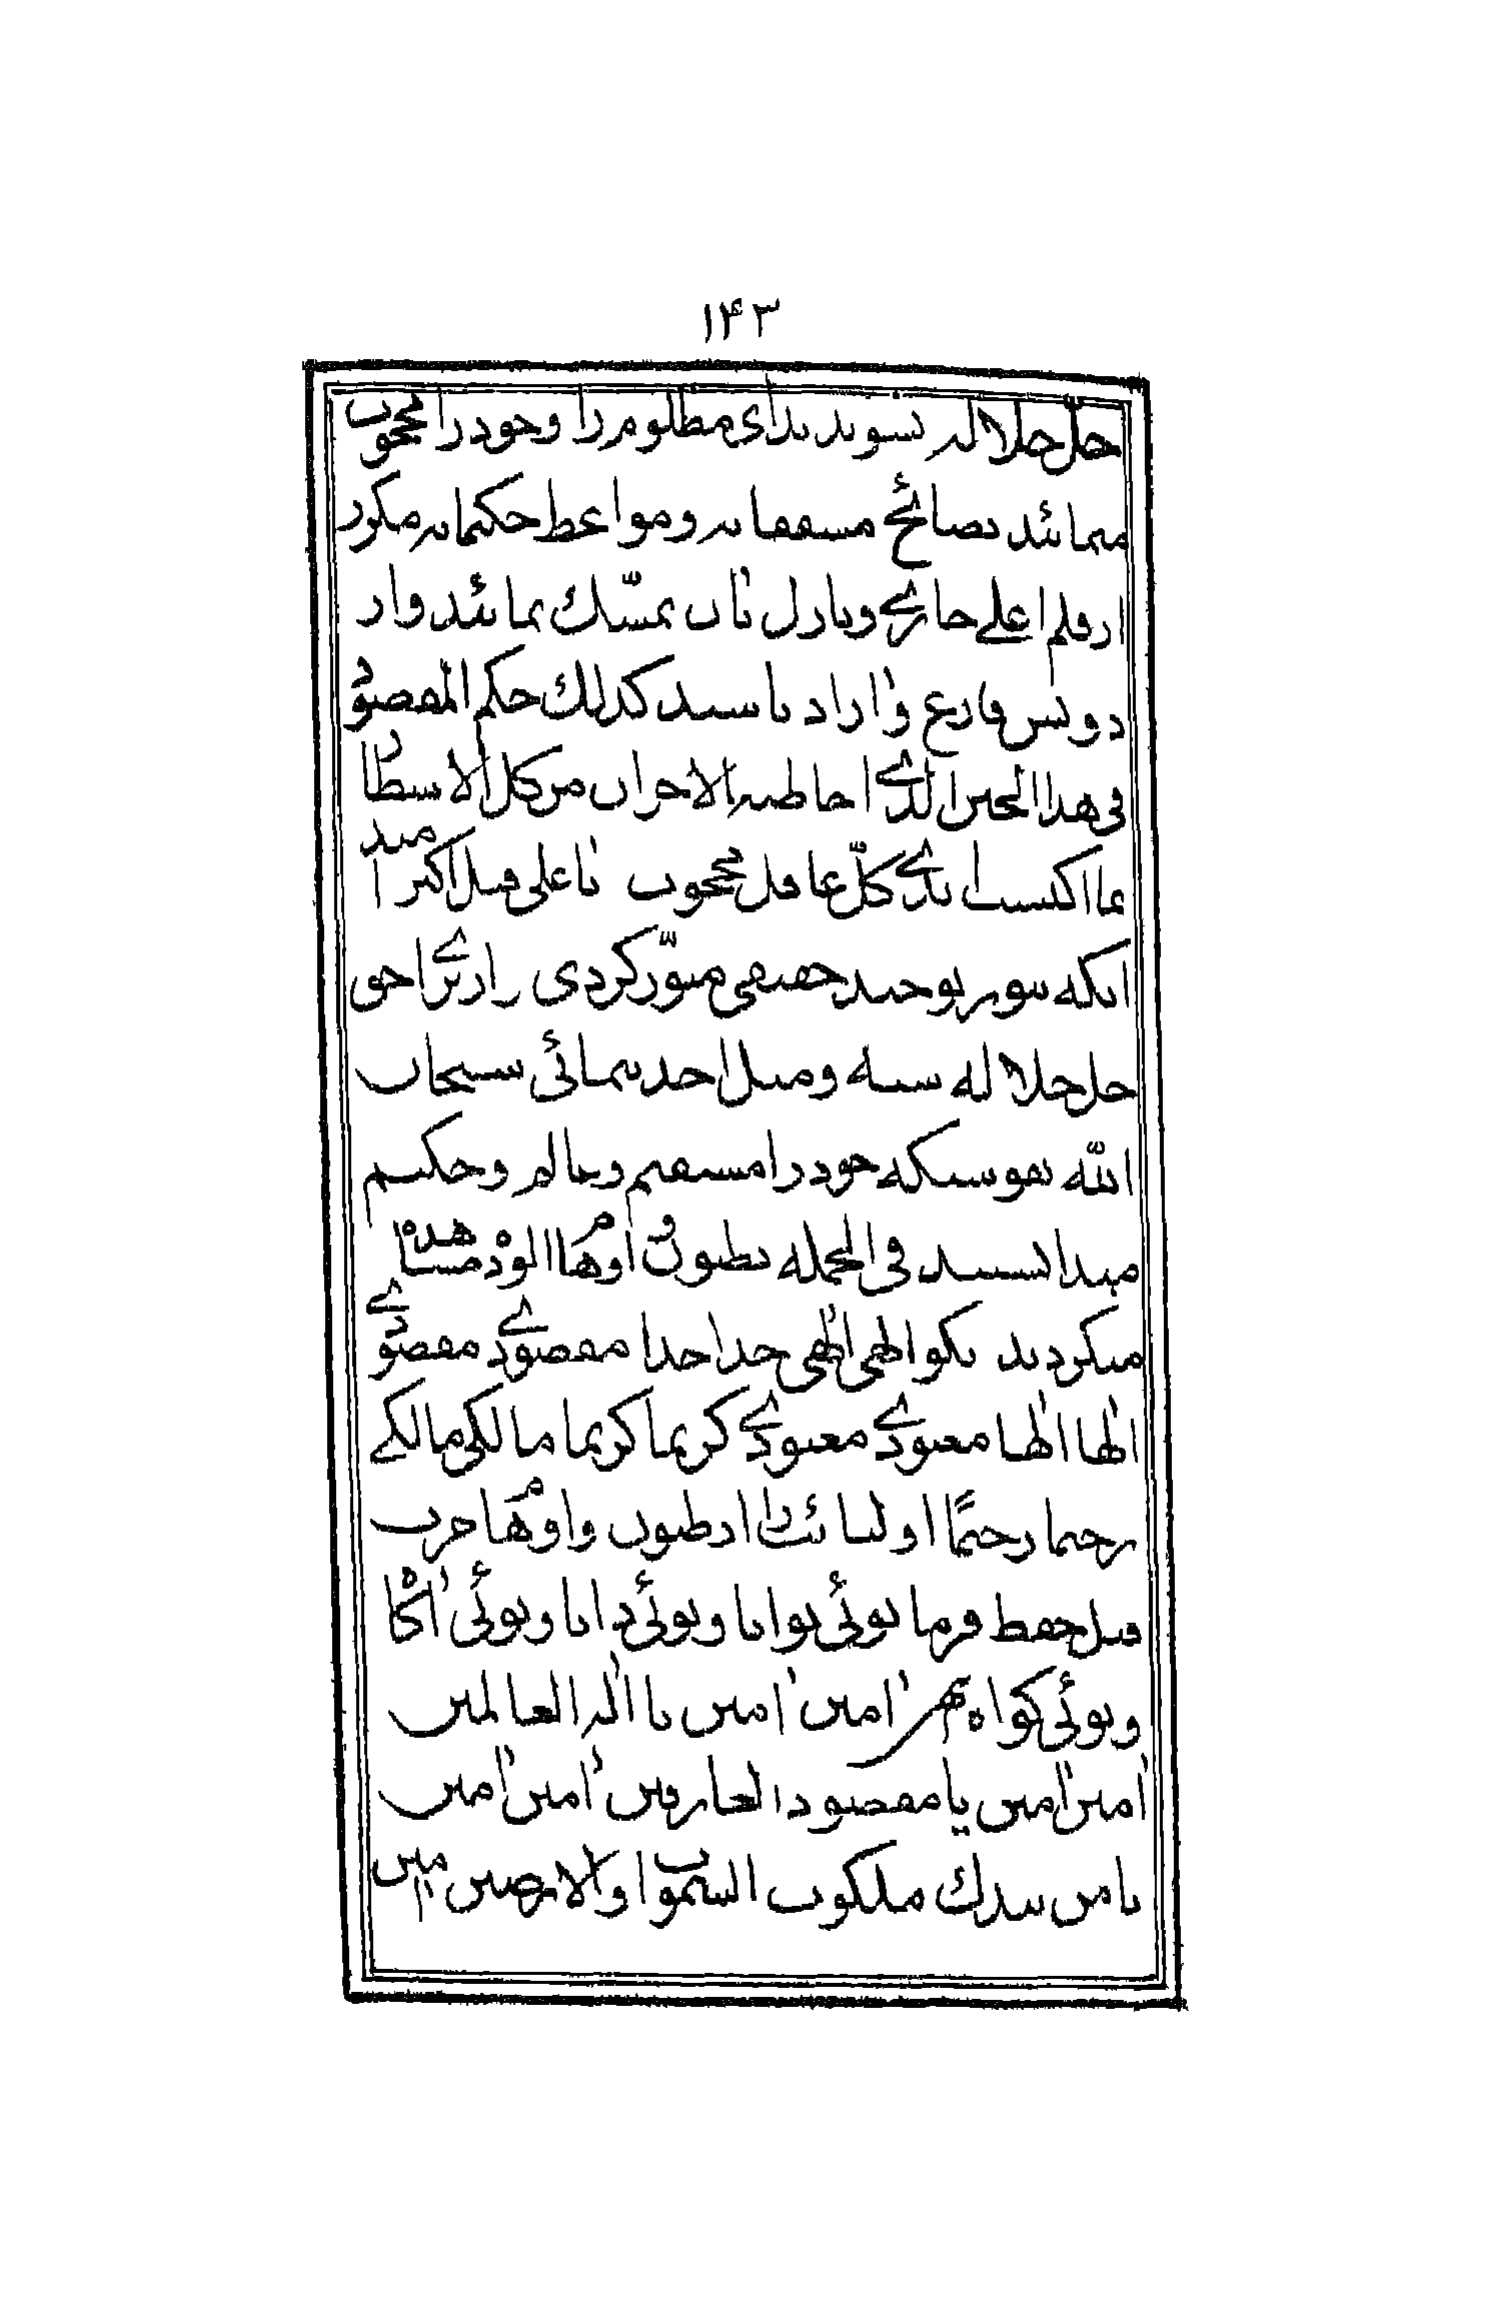 ۱۴۳
جلّ جلاله بشنوید ندای مظلوم را و خود را محجوب
منمائید نصائح مشفقانه و مواعظ حکیمانه مکرر
از قلم اعلے جارے و نازل بآن تمسّک نمائید و از
دونش فارغ و آزاد باشید کذلک حکم المقصود
فی هذا الحین الّذے احاطته الاحزان من کل الاشطار
بما اکتسبت ایدے کلّ غافل محجوب یا علی قبل اکبر امید
آنکه بنور توحید حقیقی منوّر کردی زیرا حق
جل جلاله شبه و مثل اخذ ننمائی سبحان
اللّه نفوسیکه خود را مستقیم و عالم و حکیم
میدانستند فی الجمله بظنون و اوهام آلوده مشاهده
میکردند بگو الهی الهی خدا خدا مقصودے مقصودے
الها الها معبودے معبودے کریما کریما مالکے مالکے
رحیما رحیمًا اولیائت را از ظنون و اوهام حزب
قبل حفظ فرما توئی توانا و توئی دانا و توئی آکاه
و توئی کواه آمین آمین یا اله العالمین
آمین آمین یا مقصود العارفین آمین آمین
یا من بیدک ملکوت السموات و الارضین آمین